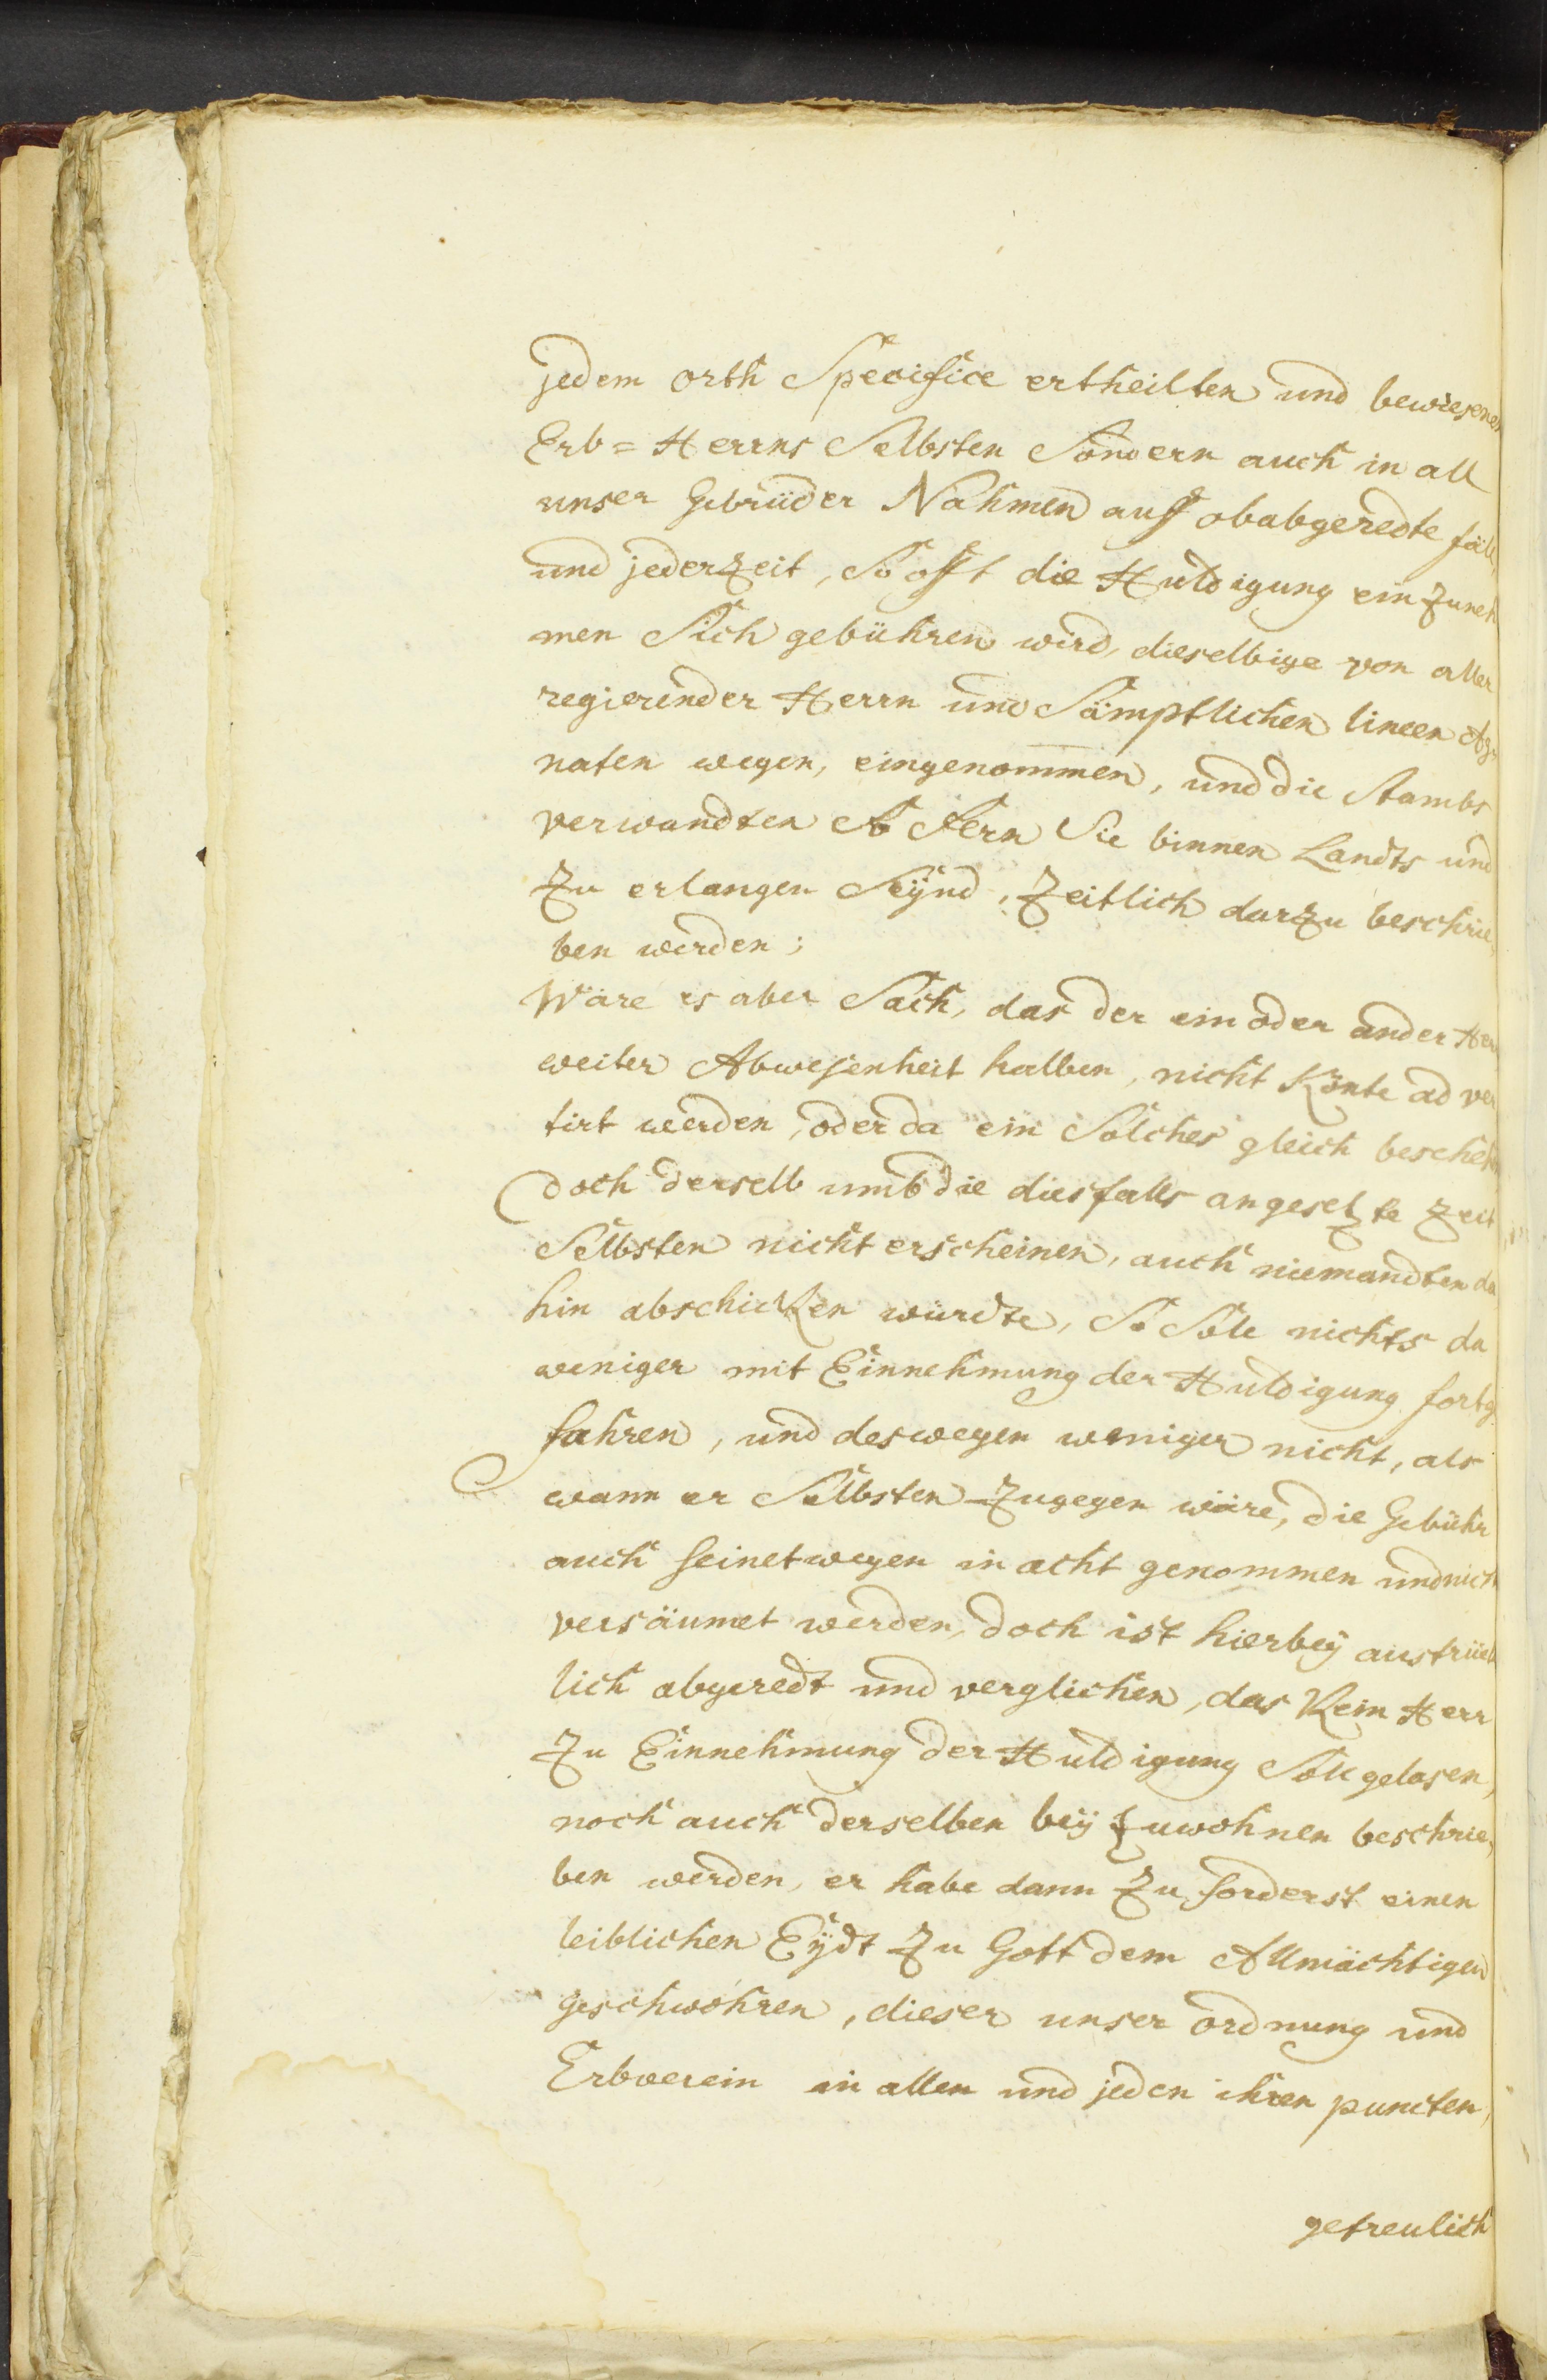 jedem orth Specifice ertheilten und bewiesenen
Erb= Herrns Selbsten Sondern auch in all
unser Gebrüder Nahmen auff obabgeredte fäll,
und jederzeit, So offt die Huldigung einzuneh
men Sich gebühren wird, dieselbige von aller
regierender Herrn und Sämptlichen lineen Ag-
naten wegen, eingenommen, und die Stambs
verwandten So Fern Sie binnen Landts und
Zu erlangen Seÿnd, Zeitlich darzu beschrie,
ben werden;
Wäre es aber Sach, das der ein oder ander Herr
weiter Abwesenheit halben, nicht Könte adver
tirt werden, oder da ein Solches gleich beschehen
doch derselb umb die diesfalls angesetzte Zeit
Selbsten nicht erscheinen, auch niemandten da
hin abschicken würdte, So Sole nichts da
weniger mit Einnehmung der Huldigung fortg
fahren, und deswegen weniger nicht, als
wann er Selbsten Zugegen wäre, die Gebühr
auch seinetwegen in acht genommen und nicht
versäumet werden, doch ist hierbeÿ austrück
lich abgeredt und verglichen, das Kein Herr
Zu Einnehmung der Huldigung Soll gelasen,
noch auch derselben beÿ Zuwohnen beschrie,
ben werden, er habe dann Zu forderst einen
leiblichen Eÿdt Zu Gott dem Allmächtigen
geschwohren, dieser unser ordnung und
Erbverein in allen und jeden ihren puncten,
getreulich